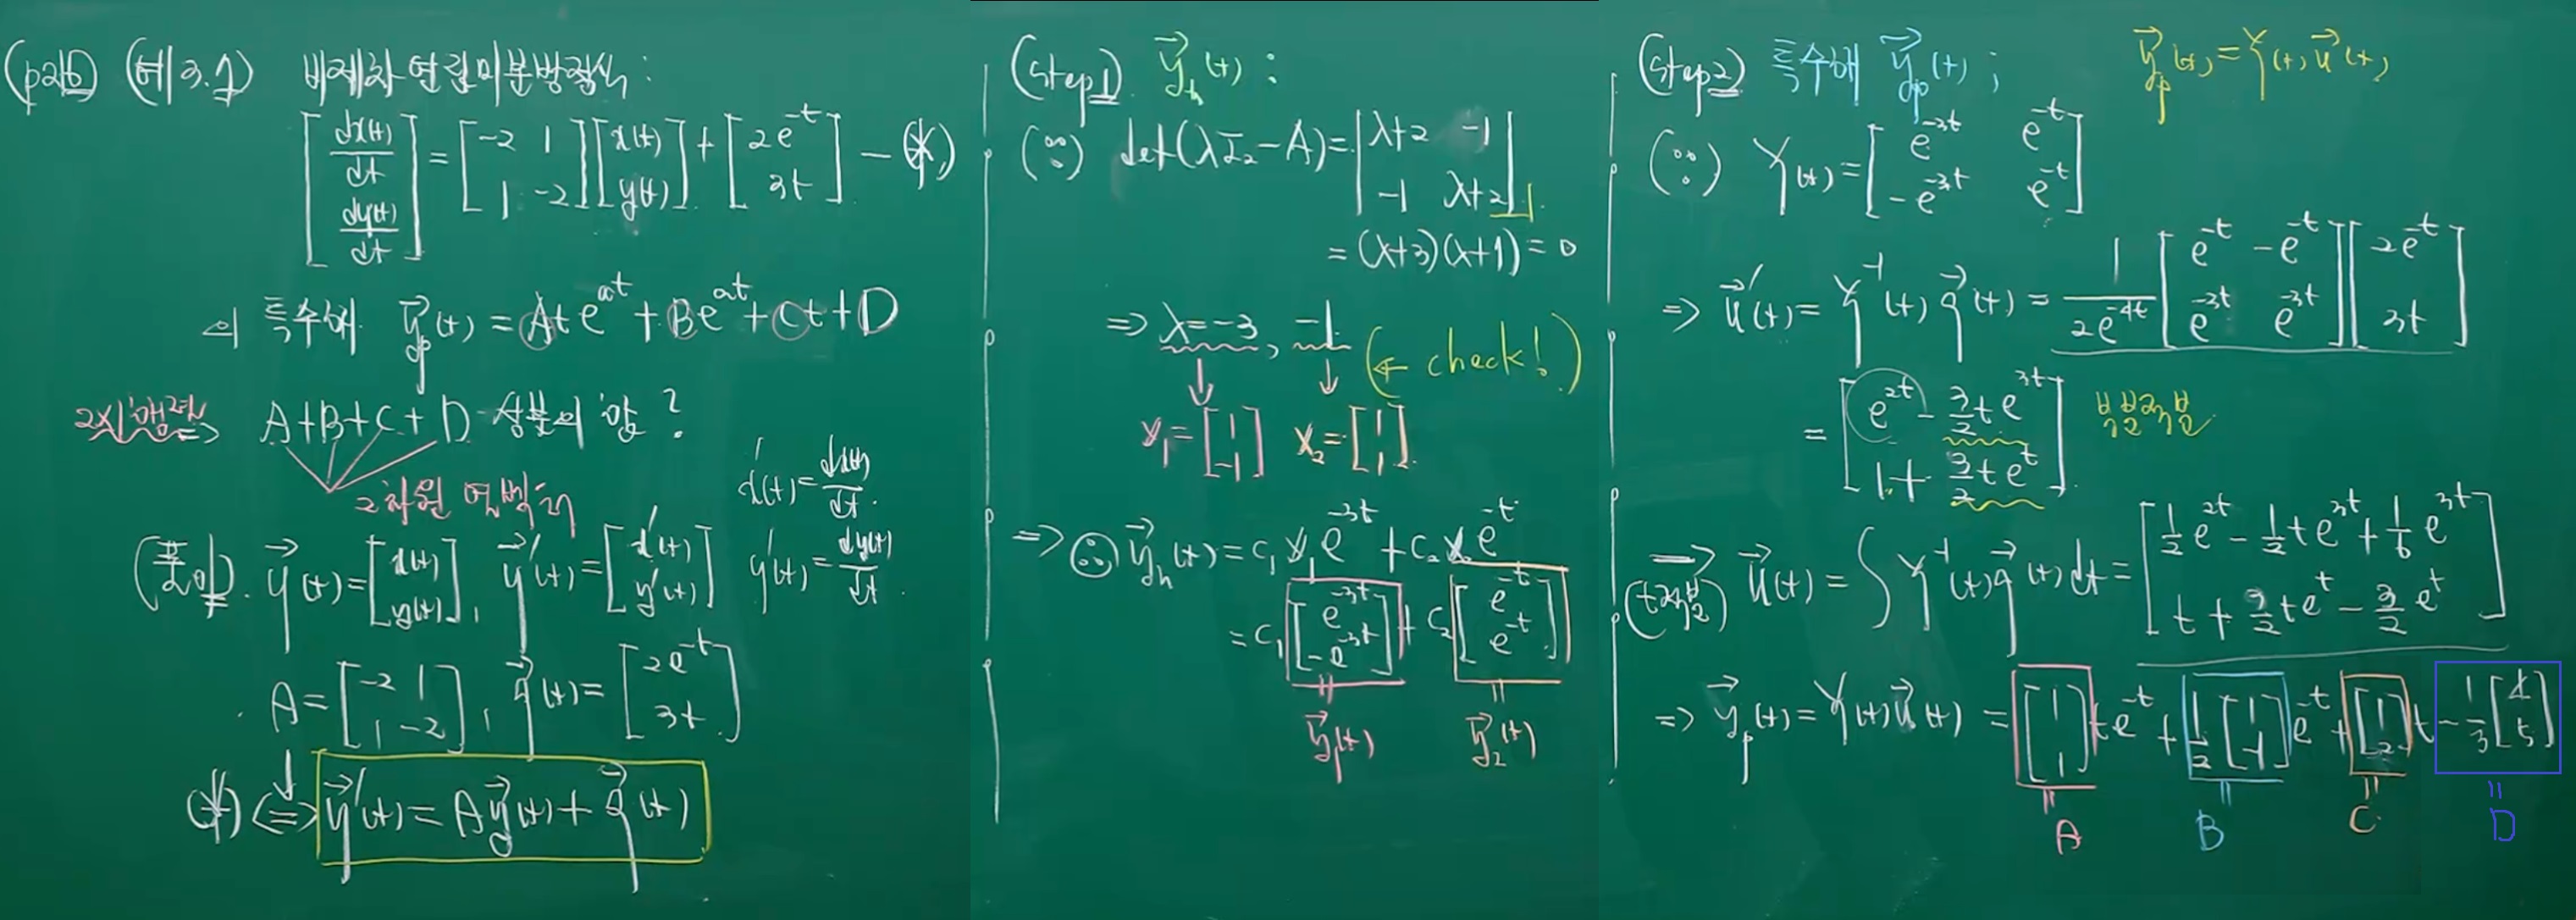 (p26) (예 3.1) 비제차 연립미분방정식 :
[dx(t)/dt dy(t)/dt] = [-2 1 1 -2] [x(t) y(t)] + [2e^{-t} 3t] — (*)
의 특수해 y⃗_p(t) = Ate^{at} + Be^{at} + Ct + D
2x1행렬 ⇒ A+B+C+D 성분의 합?
2차원 열벡터
x'(t) = dx(t)/dt
(풀이). y⃗(t) = [x(t) y(t)], y⃗'(t) = [x'(t) y'(t)] y'(t) = dy(t)/dt
A = [-2 1 1 -2], q⃗(t) = [2e^{-t} 3t]
(*) ⟺ y⃗'(t) = Ay⃗(t) + q⃗(t)
(step1) y⃗_h(t) :
(∵) det(λI₂-A) = |λ+2 -1 -1 λ+2|
= (λ+3)(λ+1) = 0
⇒ λ = -3, -1 (← check!)
x₁ = [1 -1] x₂ = [1 1]
⇒ ∴ y⃗_h(t) = c₁x₁e^{-3t} + c₂x₂e^{-t}
= c₁[e^{-3t} -e^{-3t}] + c₂[e^{-t} e^{-t}]
= y⃗₁(t) = y⃗₂(t)
(step2) 특수해 y⃗_p(t) ; y⃗_p(t) = Y(t)u⃗(t)
(∵) Y(t) = [e^{-3t} e^{-t} -e^{-3t} e^{-t}]
⇒ u⃗'(t) = Y^{-1}(t) q⃗(t) = 1/2e^{-4t} [e^{-t} -e^{-t} e^{-3t} e^{-3t}] [2e^{-t} 3t]
= [e^{2t} - 3/2 te^{3t} 1 + 3/2 te^{t}] 부분적분
⇒ (t적분) u⃗(t) = ∫Y^{-1}(t)q⃗(t)dt = [1/2 e^{2t} - 1/2 te^{3t} + 1/6 e^{3t} t + 3/2 te^{t} - 3/2 e^{t}]
⇒ y⃗_p(t) = Y(t)u⃗(t) = [1 1]te^{-t} + 1/2[1 -1]e^{-t} + [1 2]t - 1/3[4 5]
= A = B = C = D